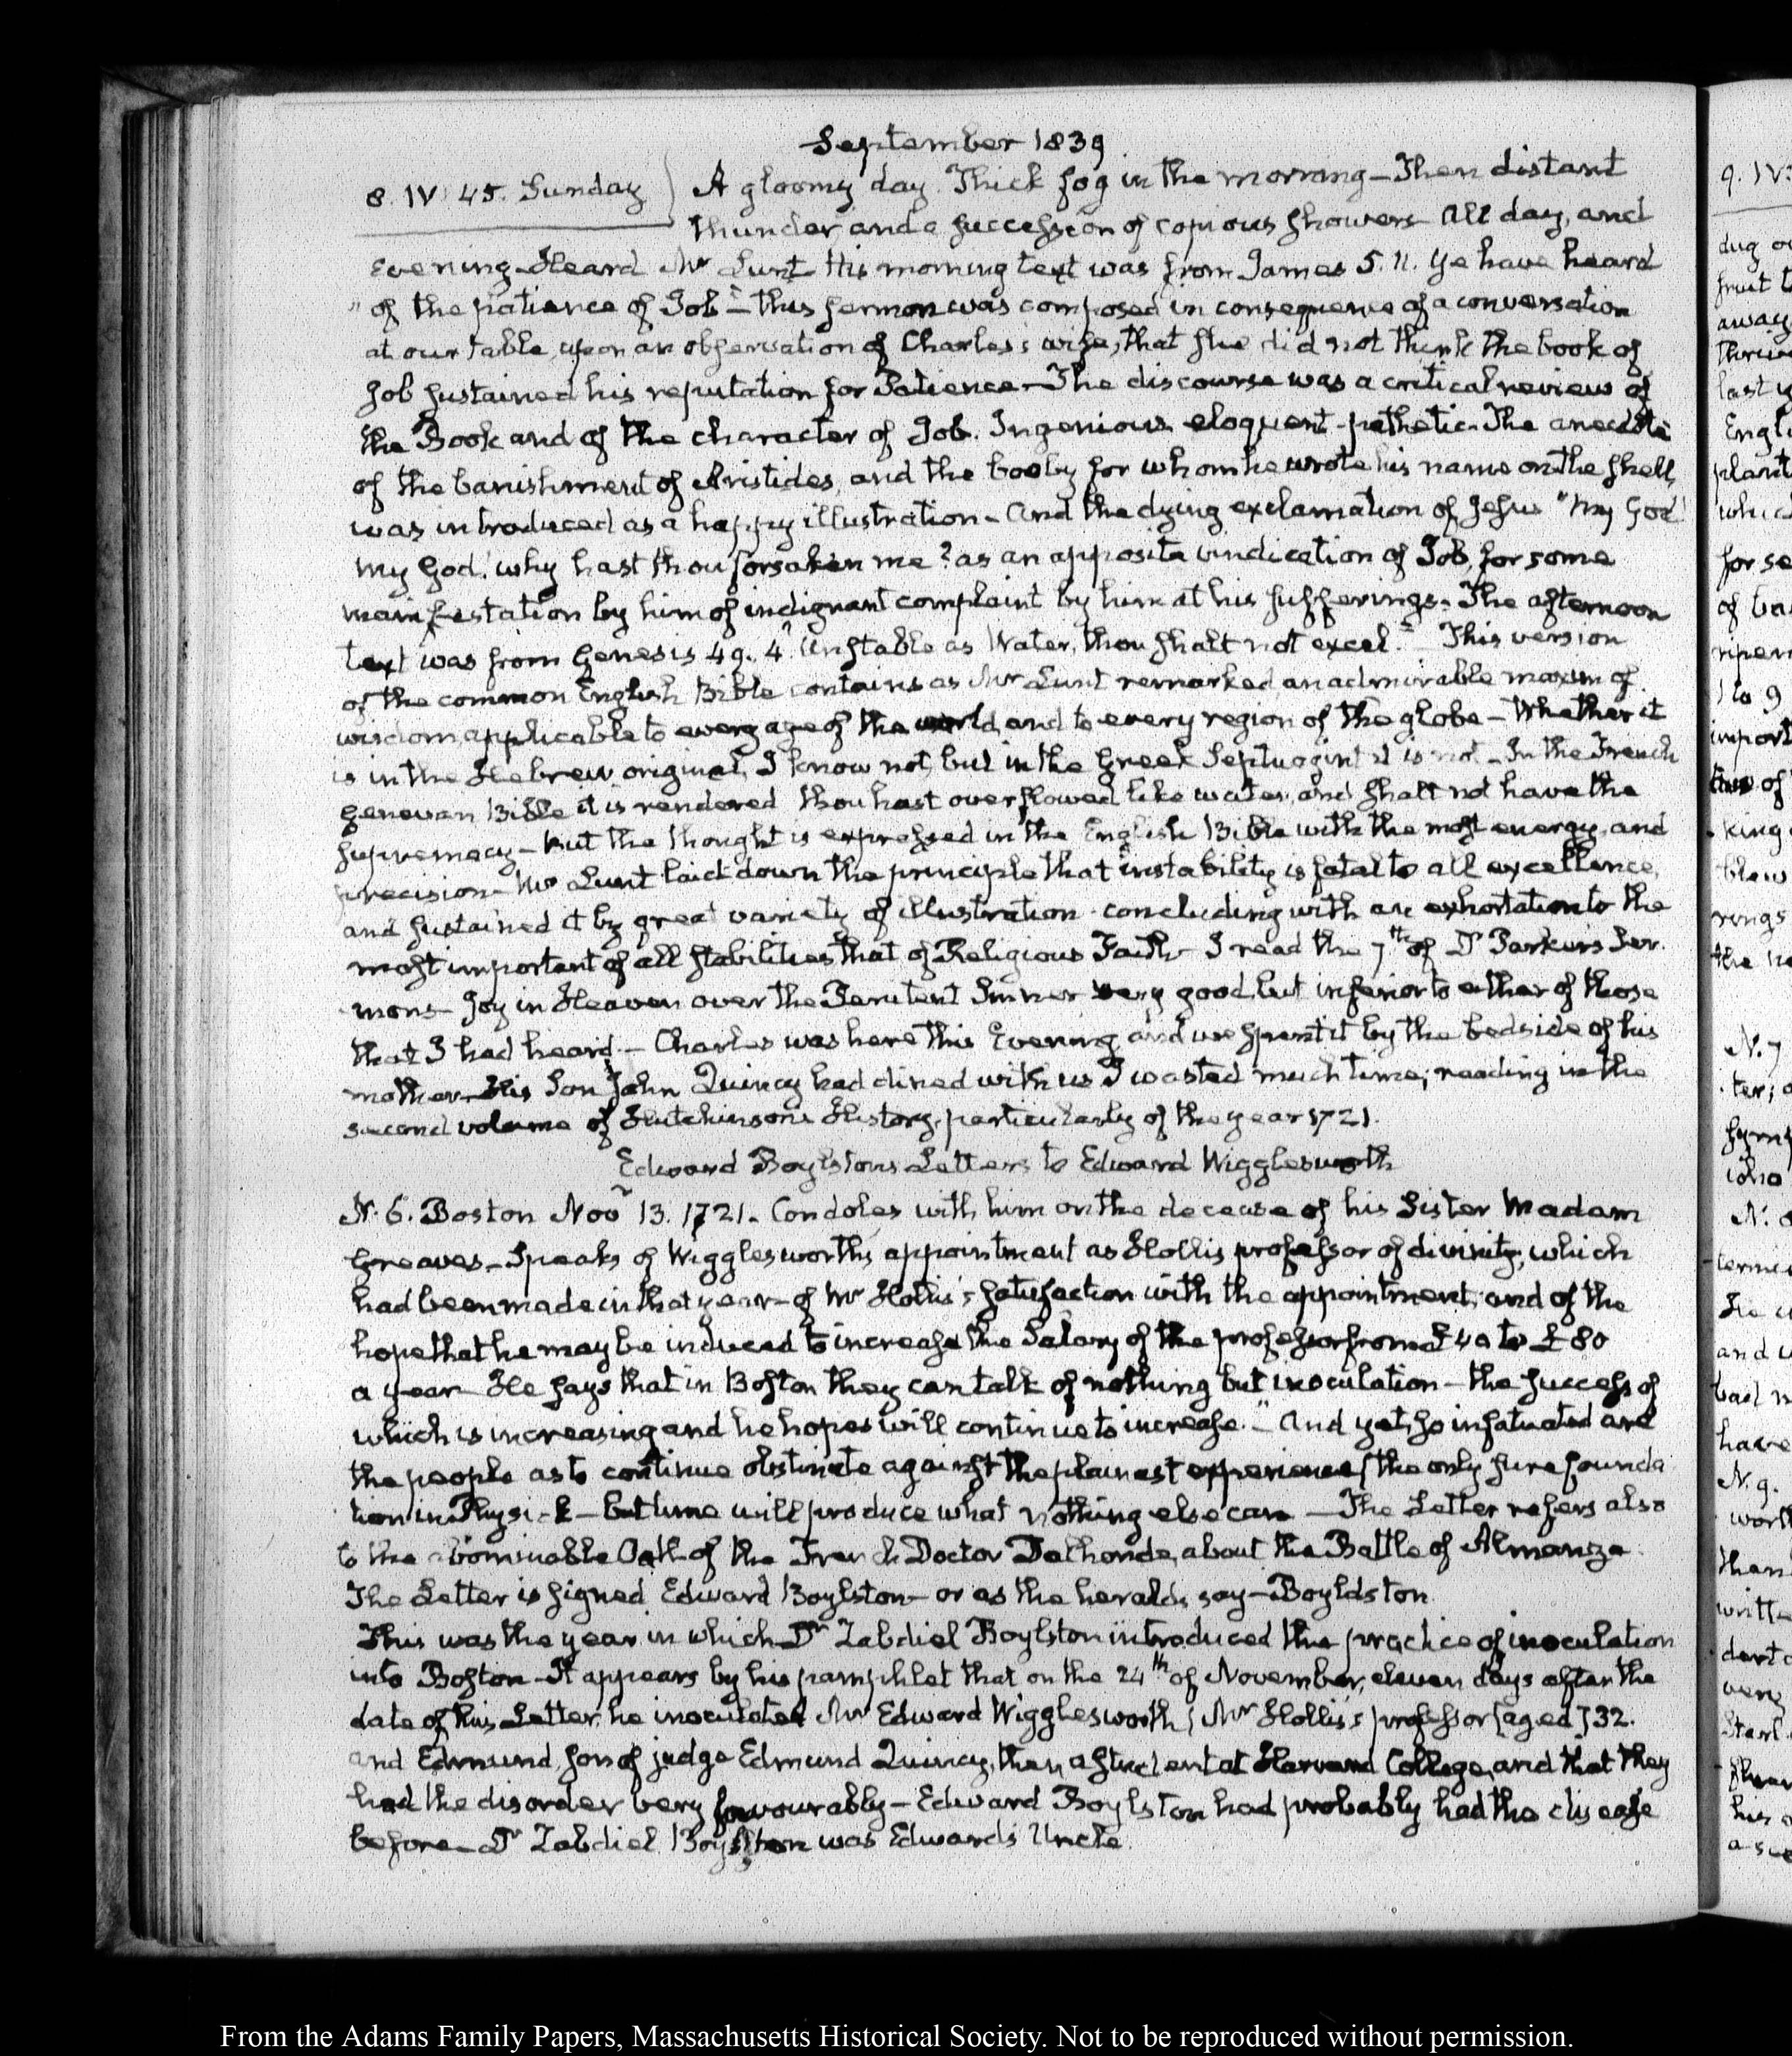 September 1839
8. IV: 45. Sunday } A gloomy day. Thick fog in the morning — Then distant
thunder and a succession of copious showers all day, and
Evening — Heard Mr Lunt — His morning text was from James 5. 11. Ye have heard
" of the patience of Job" — this sermon was composed in consequence of a conversation
at our table, upon an observation of Charles's wife, that she did not think the book of
Job sustained his reputation for Patience — The discourse was a critical review of
the Book and of the character of Job. Ingenious, eloquent — pathetic — The anecdote
of the banishment of Aristides, and the booby for whom he wrote his name on the shell,
was introduced as a happy illustration — And the dying exclamation of Jesus "My God!
my God! why hast thou forsaken me? as an apposite vindication of Job, for some
manifestation by him of indignant complaint by him at his sufferings — The afternoon
text was from Genesis 49. 4. "Unstable as Water, thou shalt not excel." — This version
of the common English Bible contains as Mr Lunt remarked, an admirable maxim of
wisdom, applicable to every age of the world, and to every region of the globe — Whether it
is in the Hebrew original, I know not, but in the Greek Septuagint it is not — In the French
Genevan Bible it is rendered thou hast overflowed like water, and shalt not have the
supremacy — but the thought is expressed in the English Bible with the most energy, and
precision — Mr Lunt laid down the principle that instability is fatal to all excellence,
and sustained it by great variety of illustration — concluding with an exhortation to the
most important of all stabilities that of Religious Faith — I read the 7th of Dr Parkers Ser-
mons — Joy in Heaven over the Penitent Sinner very good, but inferior to either of those
that I had heard — Charles was here this Evening and we spent it by the bedside of his
mother — His Son John Quincy had dined with us I wasted much time, reading in the
second volume of Hutchinson's History, particularly of the year 1721.
Edward Boylstons Letters to Edward Wigglesworth
N. 6. Boston Nov 13. 1721. Condoles with him on the decease of his Sister Madam
Greaves — Speaks of Wigglesworth's appointment as Hollis professor of divinity, which
had been made in that year — of Mr Hollis's satisfaction with the appointment; and of the
hope that he may be induced to increase the Salary of the professor from £40 to £80
a year — He says that in Boston they can talk of nothing but inoculation — the success of
which is increasing and he hopes will continue to increase. "And yet, so infatuated are
the people as to continue obstinate against the plainest experience, the only sure founda
tion in Physick — but time will produce what nothing else can — The Letter refers also
to the abominable Oath of the French Doctor Dalhonde, about the Battle of Almanza
The Letter is signed Edward Boylston — or as the heralds say — Boyldston
This was the year in which Dr Zabdiel Boylston introduced the practice of inoculation
into Boston — It appears by his pamphlet that on the 24th of November, eleven days after the
date of this Letter, he inoculated Mr Edward Wigglesworth, Mr Hollis's professor [aged] 32.
and Edmund, son of judge Edmund Quincy, then a student at Harvard College, and that they
had the disorder very favourably — Edward Boylston had probably had the disease
before — Dr Zabdiel Boylston was Edwards Uncle.
From the Adams Family Papers, Massachusetts Historical Society. Not to be reproduced without permission.